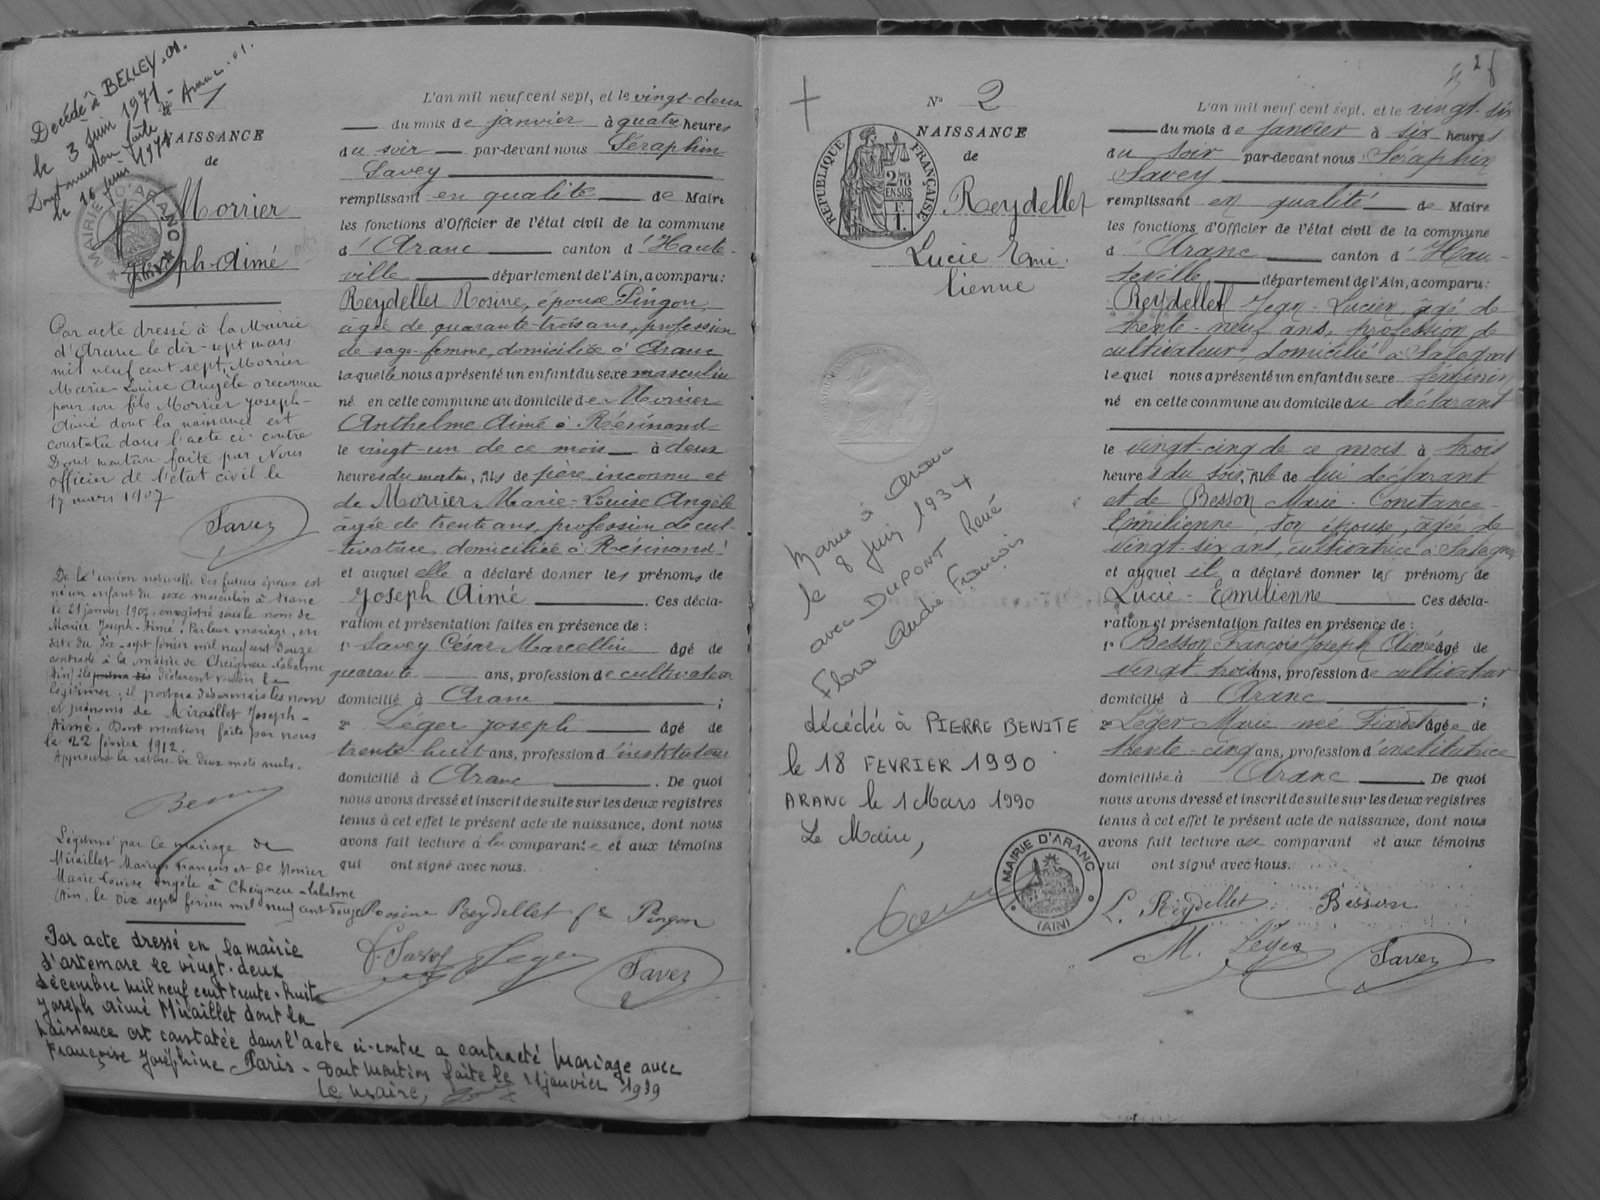 Décédé à BELLEY. 01.
le 3 Juin 1971
Dont mention faite à Aranc. 01.
le 16 Juin 1971
1
NAISSANCE
de
MAIRIE D'ARANC
Morrier
Joseph-Aimé
Par acte dressé à la Mairie
d'Aranc le dix-sept mars
mil neuf cent sept, Morrier
Marie-Louise Angèle a reconnu
pour son fils Morrier Joseph-
Aimé dont la naissance est
constatée dans l'acte ci-contre
Dont mention faite par Nous
officier de l'état civil le
17 mars 1907
Savey
De l'union naturelle des futurs époux est
né un enfant du sexe masculin à Aranc
le 21 janvier 1907 enregistré sous le nom de
Morrier Joseph-Aimé. Par leur mariage, en
date du dix-sept février mil neuf cent douze
contracté à la mairie de Cheigneu-Labalme
(Ain) ils déclarent vouloir le
légitimer; il portera désormais les nom
et prénoms de Miraillet Joseph-
Aimé. Dont mention faite par nous
le 22 février 1912.
Approuvé la rature de deux mots nuls.
Légitimé par le mariage de
Miraillet Marius François et de Morrier
Marie Louise Angèle à Cheigneu-Labalme
(Ain. le dix sept février mil neuf cent douze
Par acte dressé en la mairie
d'Artemare le vingt-deux
décembre mil neuf cent trente-huit
Joseph Aimé Miraillet dont la
naissance est constatée dans l'acte ci-contre a contracté mariage avec
Françoise Joséphine Paris - Dont mention faite le 11 janvier 1939
Le maire,
L'an mil neuf cent sept, et le vingt-deux
du mois de janvier à quatre heures
du soir par-devant nous Séraphin
Savey
remplissant en qualité de Maire
les fonctions d'Officier de l'état civil de la commune
d'Aranc canton d'Haute-
ville département de l'Ain, a comparu:
Reydellet Rosine, épouse Pingon,
âgée de quarante-trois ans, profession
de sage-femme, domiciliée à Aranc
laquelle nous a présenté un enfant du sexe masculin
né en cette commune au domicile de Morrier
Anthelme Aimé à Résinand
le vingt-un de ce mois à deux
heures du matin, fils de père inconnu et
de Morrier Marie-Louise Angèle
âgée de trente ans, profession de cul-
tivatrice, domiciliée à Résinand
et auquel elle a déclaré donner les prénoms de
Joseph Aimé Ces décla-
ration et présentation faites en présence de :
1° Savey César Marcellin âgé de
quarante ans, profession de cultivateur
domicilié à Aranc ;
2° Léger Joseph âgé de
trente-huit ans, profession d'instituteur
domicilié à Aranc . De quoi
nous avons dressé et inscrit de suite sur les deux registres
tenus à cet effet le présent acte de naissance, dont nous
avons fait lecture à la comparante et aux témoins
qui ont signé avec nous.
Rosine Reydellet fe Pingon
C. Savey Léger Savey
28
N° 2
NAISSANCE
de
RÉPUBLIQUE FRANÇAISE
Reydellet
Lucie Emi-
lienne
Mariée à Aranc
le 8 Juin 1934
avec DUPONT René
Flora André François
décédée à PIERRE BENITE
le 18 FEVRIER 1990
ARANC le 1 Mars 1990
Le Maire,
MAIRIE D'ARANC
(AIN)
L'an mil neuf cent sept, et le vingt-six
du mois de janvier à six heures
du soir par-devant nous Séraphin
Savey
remplissant en qualité de Maire
les fonctions d'Officier de l'état civil de la commune
d'Aranc canton d'Hau-
teville département de l'Ain, a comparu:
Reydellet Jean-Lucien âgé de
trente-neuf ans, profession de
cultivateur, domicilié à
lequel nous a présenté un enfant du sexe féminin
né en cette commune au domicile du déclarant
le vingt-cinq de ce mois à trois
heures du soir, fille de lui déclarant
et de Besson Marie-Constance-
Emilienne, son épouse, âgée de
vingt-six ans, cultivatrice à
et auquel il a déclaré donner les prénoms de
Lucie-Emilienne Ces décla-
ration et présentation faites en présence de :
1° Besson François Joseph Aimé âgé de
vingt-trois ans, profession de cultivateur
domicilié à Aranc ;
2° Léger Marie née âgée de
trente-cinq ans, profession d'institutrice
domiciliée à Aranc . De quoi
nous avons dressé et inscrit de suite sur les deux registres
tenus à cet effet le présent acte de naissance, dont nous
avons fait lecture au comparant et aux témoins
qui ont signé avec nous.
L. Reydellet Besson
M. Léger Savey